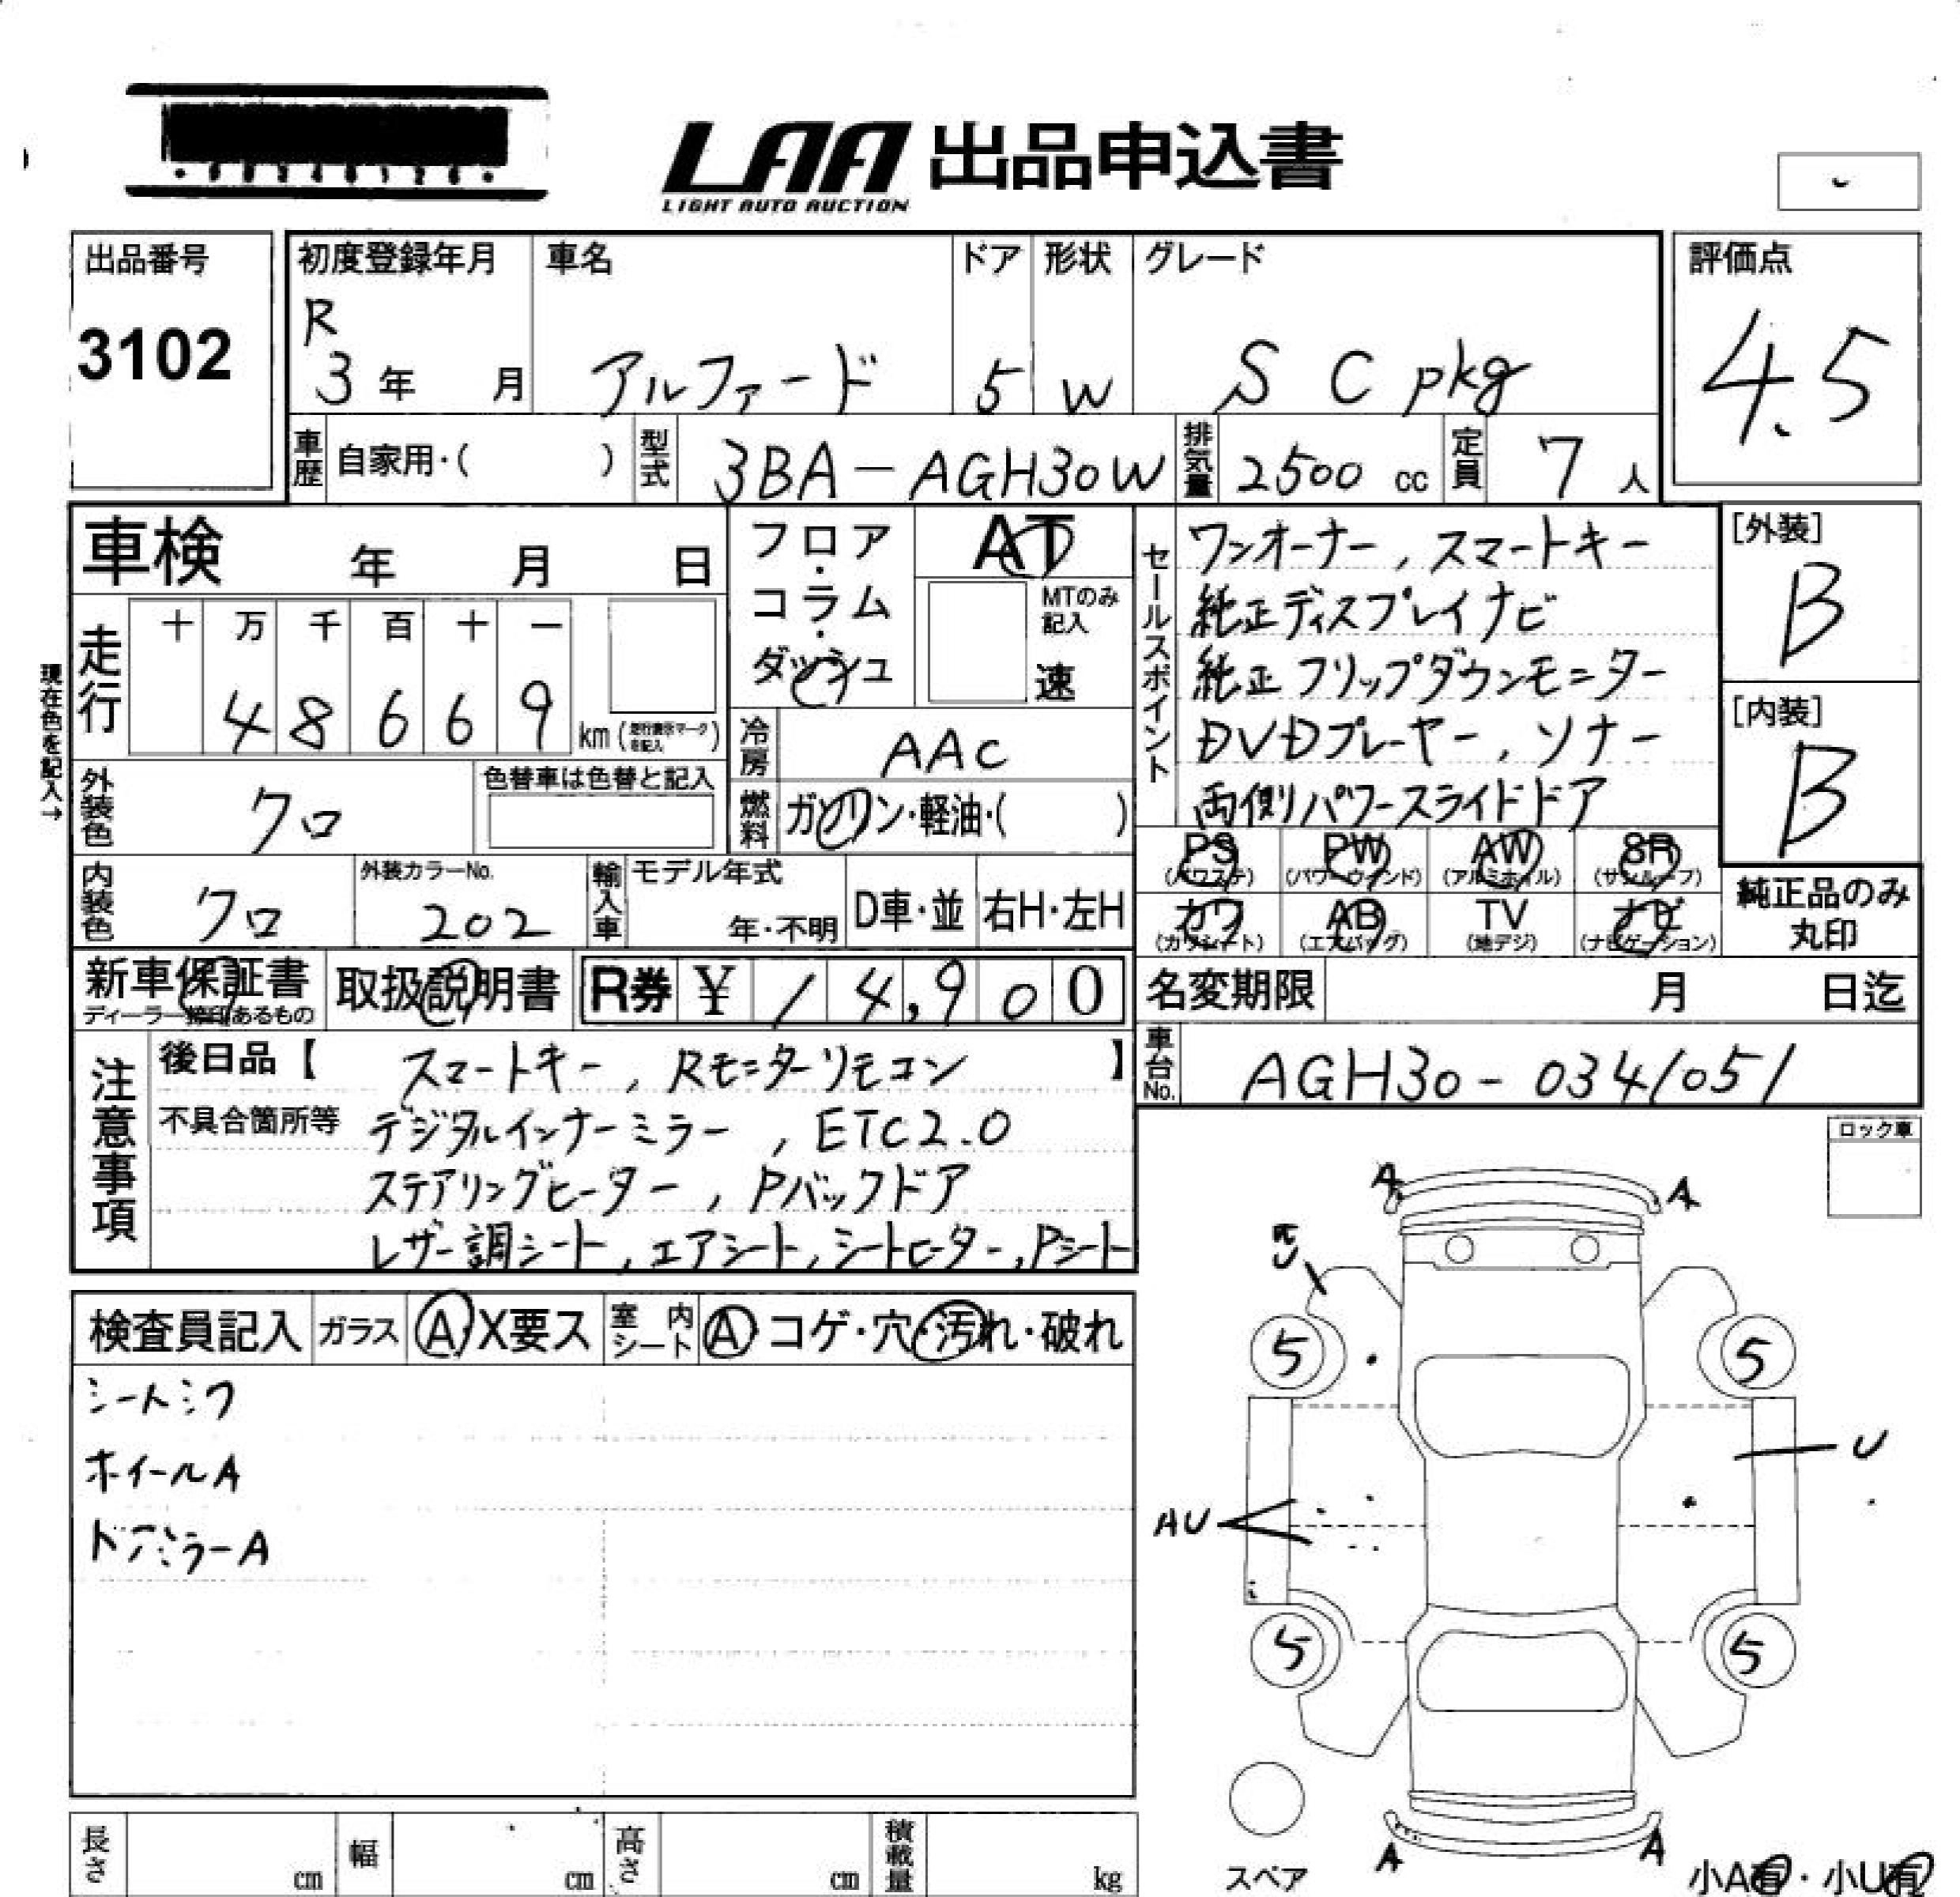 LAA 出品申込書
LIGHT AUTO AUCTION
出品番号
3102
初度登録年月
R
3 年 月
車名
アルファード
ドア
5
形状
W
グレード
S C pkg
評価点
4.5
車歴 自家用・( )
型式 3BA-AGH30W
排気量 2500 cc
定員 7 人
車検 年 月 日
走行
十 万 千 百 十 一
4 8 6 6 9 km (
を記入 )
現在色を記入→
フロア
・
コラム
・
ダッシュ
AT
MTのみ
記入
速
冷房 AAC
燃料 ガソリン・軽油・( )
外装色 クロ
色替車は色替と記入
内装色 クロ
外装カラーNo.
202
輸入車
モデル年式
年・不明
D車・並
右H・左H
セールスポイント
ワンオーナー, スマートキー
純正ディスプレイナビ
純正フリップダウンモニター
DVDプレーヤー, ソナー
両側パワースライドドア
[外装]
B
[内装]
B
PS
(パワステ)
PW
(パワーウインド)
AW
(アルミホイル)
SR
(サンルーフ)
カワ
(カワシート)
AB
(エアバッグ)
TV
(地デジ)
ナビ
(ナビゲーション)
純正品のみ
丸印
新車保証書
ディーラー捺印あるもの
取扱説明書
R券 ¥ 14,900
名変期限 月 日迄
車台No. AGH30-0341051
注意事項
後日品【 スマートキー, Rモニターリモコン 】
不具合箇所等 デジタルインナーミラー, ETC2.0
ステアリングヒーター, Pバックドア
レザー調シート, エアシート, シートヒーター, Pシート
ロック車
検査員記入
ガラス A・X要ス
室内シート A・コゲ・穴・汚れ・破れ
シートシワ
ホイールA
ドアミラーA
A A
5 5
U
AU
5 5
A A
スペア
小A有・小U有
長さ cm
幅 cm
高さ cm
積載量 kg